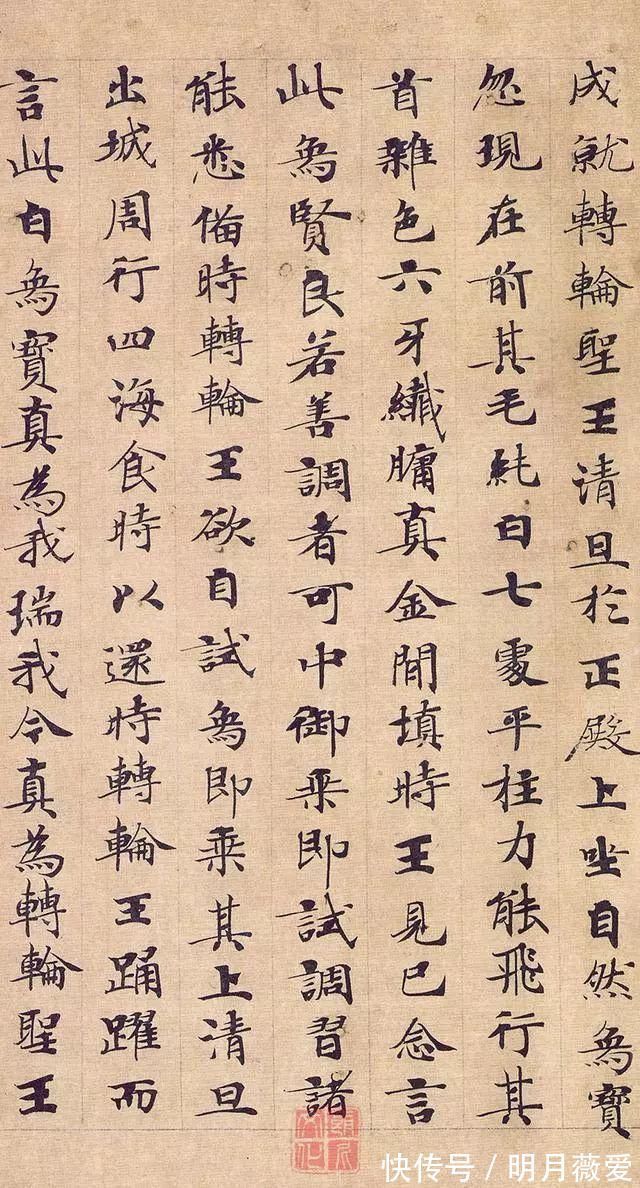 成就轉輪聖王清旦於正殿上坐自然象寶
忽現在前其毛純白七處平柱力能飛行其
首雜色六牙纖𦟛真金間填時王見已念言
此象賢良若善調者可中御乘即試調習諸
能悉備時轉輪王欲自試象即乘其上清旦
出城周行四海食時以還時轉輪王踊躍而
言此白象寶真為我瑞我今真為轉輪聖王
快传号／明月薇爱